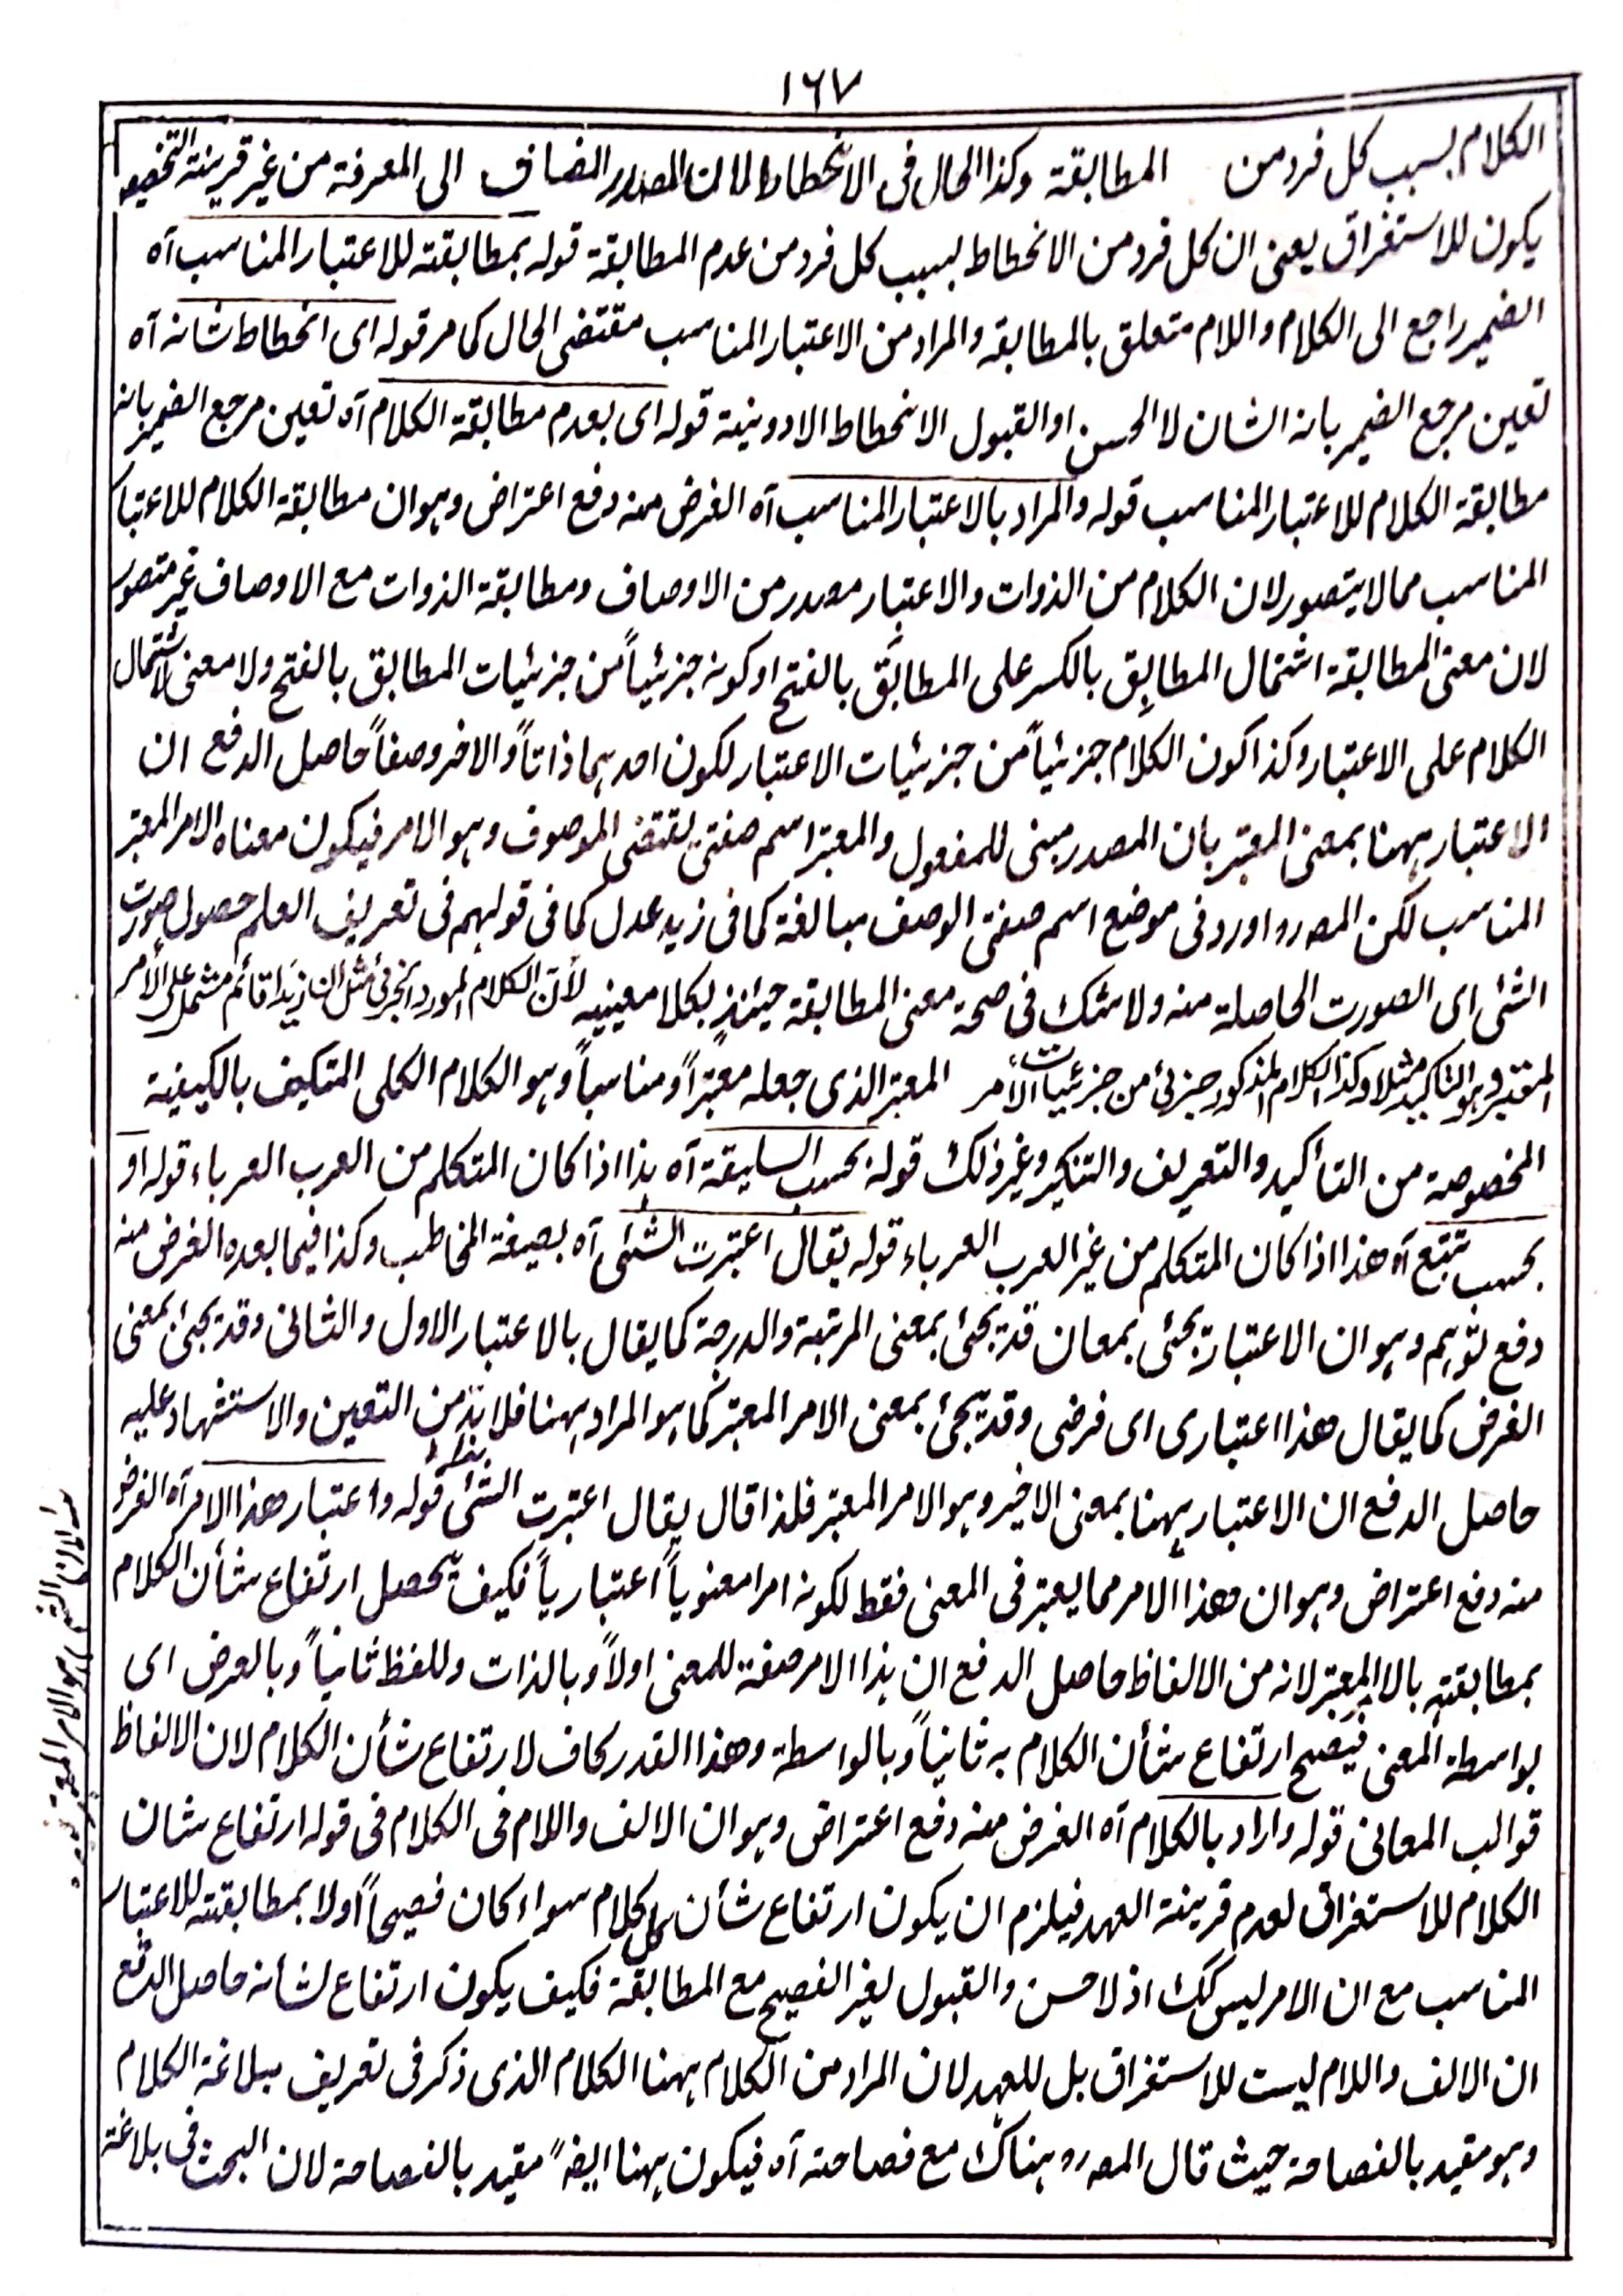 ١٦٧
الكلام بسبب كل فرد من المطابقة وكذا الحال فى الانحطاط لان المصدر المضاف الى المعرفة من غير قرينة التخصيص
يكون للاستغراق يعنى ان كل فرد من الانحطاط بسبب كل فرد من عدم المطابقة قوله بمطابقته للاعتبار المناسب آه
الضمير راجع الى الكلام واللام متعلق بالمطابقه والمراد من الاعتبار المناسب مقتضى الحال كما مر قوله اى انحطاط شانه آه
تعين مرجع الضمير بانه الشان لا الحسن او القبول الانحطاط الادونية قوله اى بعدم مطابقة الكلام آه تعين مرجع الضمير بانه
مطابقة الكلام للاعتبار المناسب قوله والمراد بالاعتبار المناسب آه الغرض منه دفع اعتراض وهو ان مطابقة الكلام للاعتبار
المناسب مما لا يتصور لان الكلام من الذوات والاعتبار مصدر من الاوصاف ومطابقة الذوات مع الاوصاف غير متصور
لان معنى المطابقة اشتمال المطابِق بالكسر على المطابَق بالفتح او كونه جزئياً من جزئيات المطابق بالفتح ولا معنى لاشتمال
الكلام على الاعتبار وكذا كون الكلام جزئياً من جزئيات الاعتبار لكون احدهما ذاتاً والاخر وصفاً حاصل الدفع ان
الاعتبار ههنا بمعنى المعتبر بان المصدر مبنى للمفعول والمعتبر اسم صفتى يقتضى الموصوف وهو الامر فيكون معناه الامر المعتبر
المناسب لكن المصر واورد فى موضع اسم صفتى الوصف مبالغة كما فى زيد عدل كما فى قولهم فى تعريف العلم حصول صورت
الشئ اى الصورت الحاصلة منه ولا شك فى صحة معنى المطابقة حينئذٍ بكلا معنييه لأن الكلام المورد الجزئى مثل ان زيدا قائم مشتمل على الأمر
المعتبر وهو التاكيد مثلا وكذا الكلام المذكور جزئ من جزئيات الأمر المعتبر الذى جعله معتبراً ومناسباً وهو الكلام الكلى المتكيف بالكيفية
المخصوصة من التأكيد والتعريف والتنكير وغير ذلك قوله بحسب السليقة آه هذا اذا كان المتكلم من العرب العرباء قوله او
بحسب تتبع آه هذا اذا كان المتكلم من غير العرب العرباء قوله يقال اعتبرت الشئى آه بصيغة المخاطب وكذا فيما بعده الغرض منه
دفع توهم وهو ان الاعتبار يجئى بمعان قد يجئى بمعنى المرتبة والدرجة كما يقال بالاعتبار الاول والثانى وقد يجئى بمعنى
الفرض كما يقال هذا اعتبارى اى فرضى وقد يجئ بمعنى الامر المعتبر كما هو المراد ههنا فلا بد من التعين والاستشهاد عليه
حاصل الدفع ان الاعتبار ههنا بمعنى الاخير وهو الامر المعتبر فلذا قال يقال اعتبرت الشئى قوله واعتبار هذا الامر آه الغرض
منه دفع اعتراض وهو ان هذا الامر مما يعتبر فى المعنى فقط لكونه امرا معنوياً اعتبارياً فكيف يحصل ارتفاع شأن الكلام
بمطابقته بالا المعتبر لانه من الالفاظ حاصل الدفع ان هذا الامر صفة للمعنى اولاً وبالذات وللفظ ثانياً وبالعرض اى
بواسطة المعنى فيصح ارتفاع شأن الكلام به ثانياً وبالواسطة وهذا القدر كاف لارتفاع شأن الكلام لان الالفاظ
قوالب المعانى قوله واراد بالكلام آه الغرض منه دفع اعتراض وهو ان الالف واللام فى الكلام فى قوله ارتفاع شان
الكلام للاستغراق لعدم قرينة العهد فيلزم ان يكون ارتفاع شأن كل كلام سواء كان فصيحاً اولا بمطابقته للاعتبار
المناسب مع ان الامر ليس كك اذ لا حسن والقبول لغير الفصيح مع المطابقة فكيف يكون ارتفاع لشأنه حاصل الدفع
ان الالف واللام ليست للاستغراق بل للعهد لان المراد من الكلام ههنا الكلام الذى ذكر فى تعريف ببلاغة الكلام
وهو مقيد بالفصاحة حيث قال المصرو هناك مع فصاحته آه فيكون ههنا ايضاً مقيد بالفصاحة لان البحث فى بلاغة